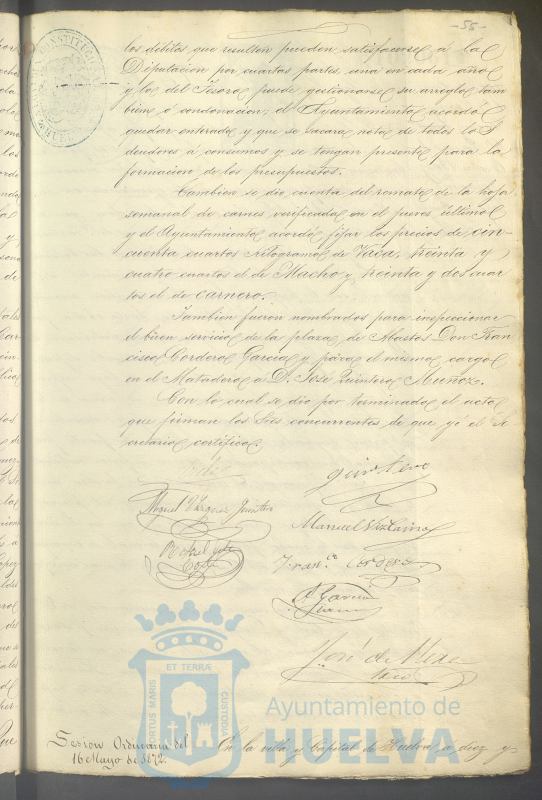 -55-
los debitos que resulten pueden satisfacerse á la
Diputacion por cuartas partes, una en cada año
y los del Tesoro puede gestionarse su arreglo tam
bien ó condonacion, el Ayuntamiento acordó
quedar enterado y que se sacare nota de todos los
deudores á consumos y se tengan presente para la
formacion de los presupuestos.
Tambien se dio cuenta del remate de la hoja
semanal de carnes verificada en el jueves último
y el Ayuntamiento acordó fijar los precios de cin
cuenta cuartos kilogramo de Vaca, treinta y
cuatro cuartos el de Macho y treinta y dos cuar
tos el de carnero.
Tambien fueron nombrados para inspeccionar
el buen servicio de la plaza de Abastos Don Fran
cisco Cordero Garcia y para el mismo cargo
en el Matadero a D. José Quintero Muñoz.
Con lo cual se dio por terminado el acto
que firman los Sres concurrentes de que yó el Se
cretario certifico.
Quintero
Miguel Vazquez Quintero
Manuel Vizcaino
Rafael de la
Corte
Fran.co Cordero
A. Garcia
José de Mesa
ET TERRÆ
PORTUS MARIS
CUSTODIA
Ayuntamiento de
HUELVA
Sesion Ordinaria del
16 Mayo de 1872.
En la villa y Capital de Huelva, a diez y